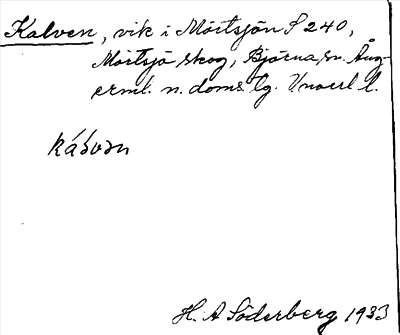 Kalven, vik i Mörtsjön S 240,
Mörtsjö skog, Björna sn. Ång-
erml. n. doms.lg. Vnorrl l.
kálvən
H. A Söderberg 1933